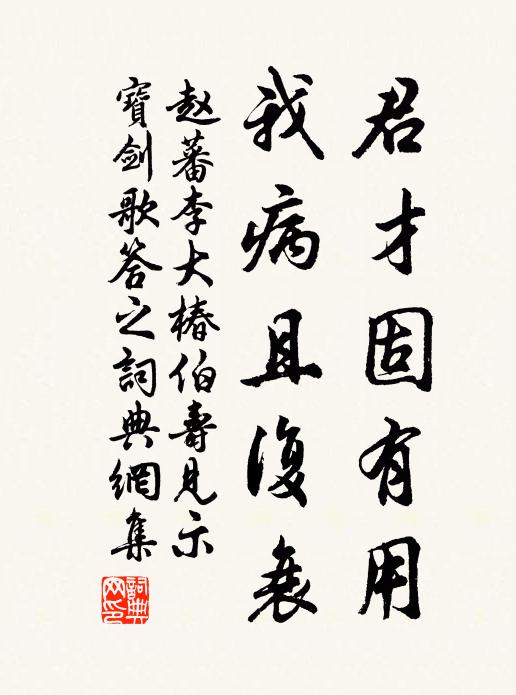 君才固有用
我病且復衰
赵蕃李大椿伯壽見示
寶劍歌答之詞典網集
詞典
网印